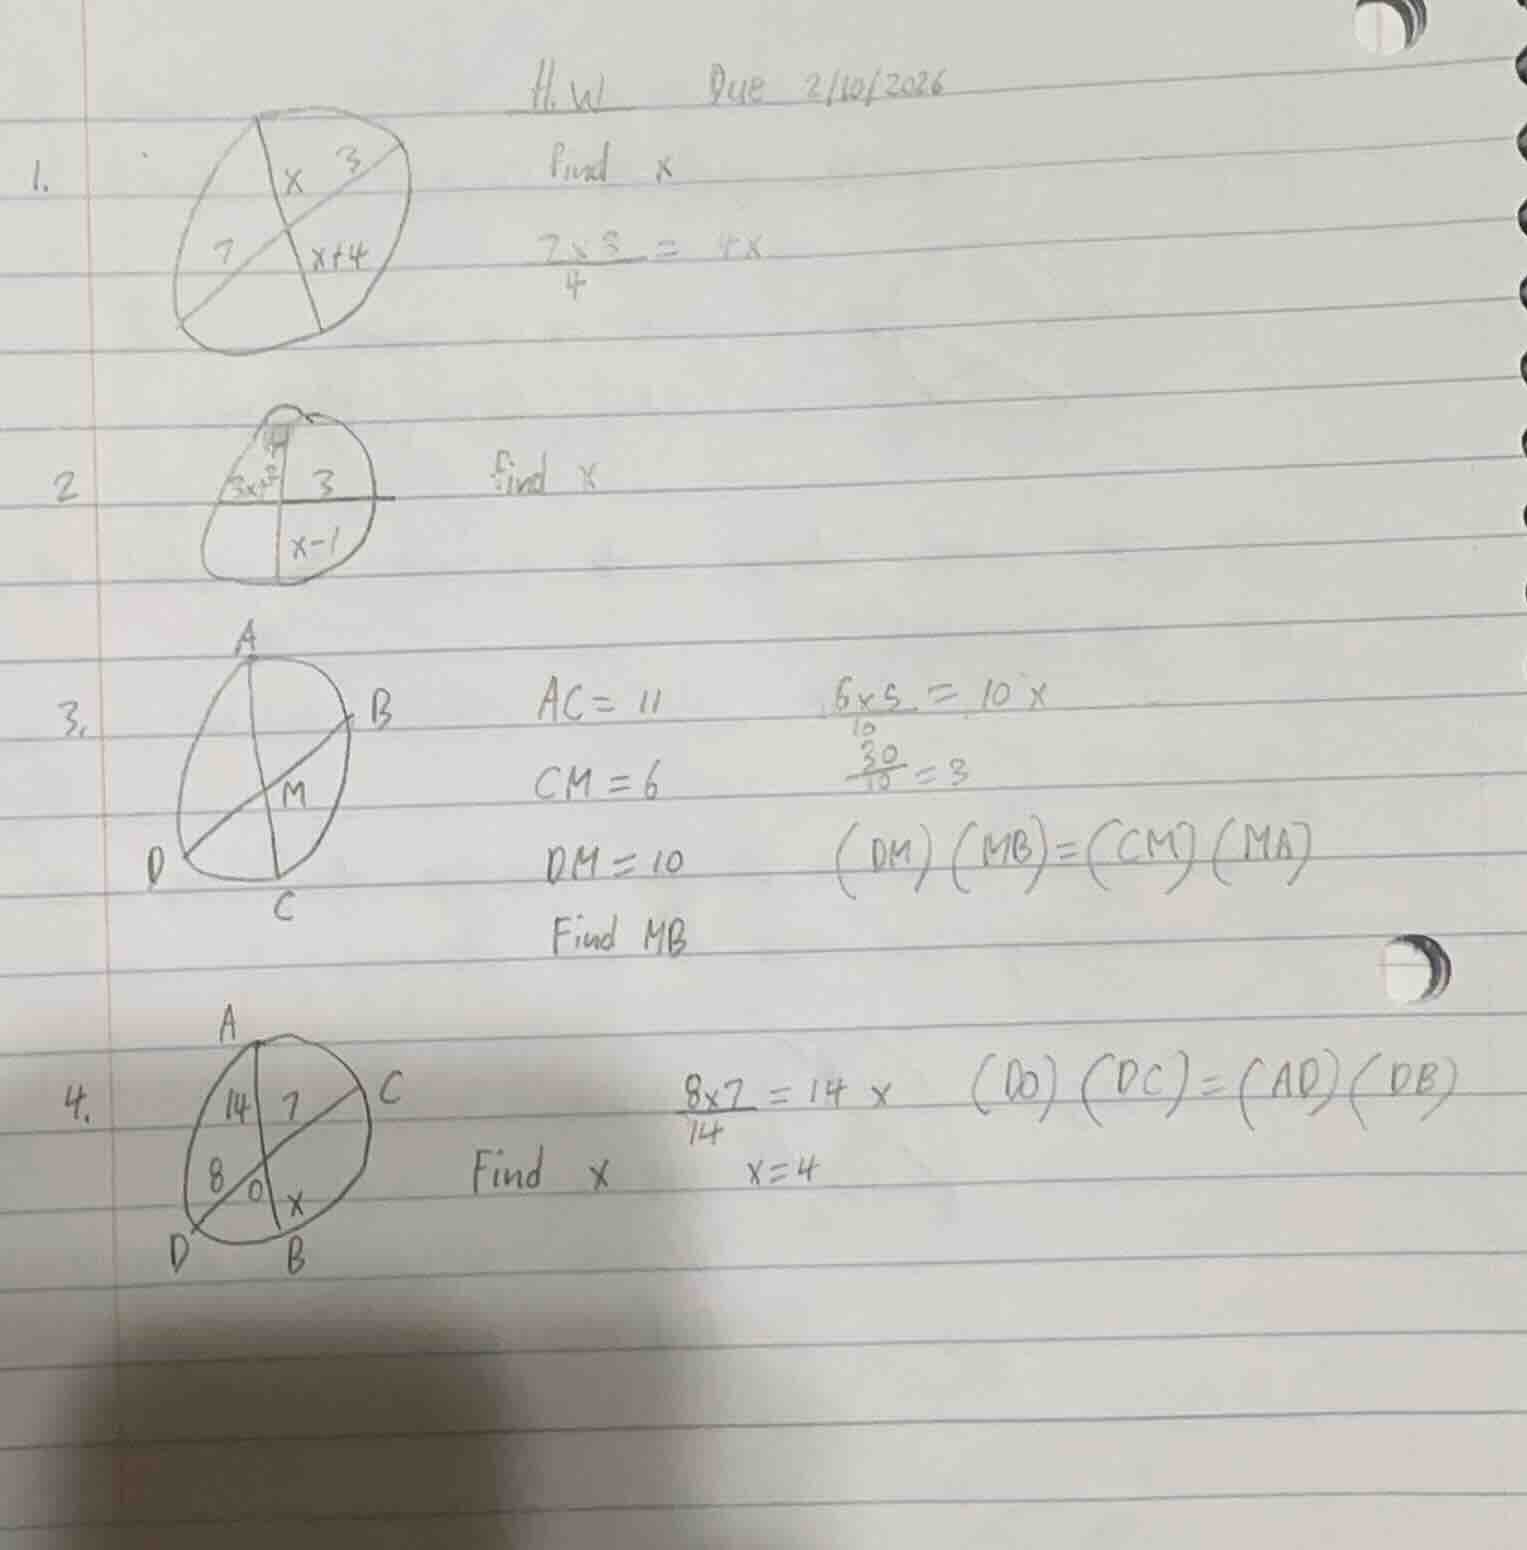 H.W Due 2/10/2026
1. x 3 7 x+4
find x
7 x 3 = 4x
4
2 3 x-1
find x
3. A B M D C
AC = 11
CM = 6
DM = 10
Find MB
6 x 5 = 10 x
10
30 = 3
10
(DM) (MB) = (CM) (MA)
4. A C 14 7 8 O x D B
Find x
8x7 = 14 x
14
x = 4
(DO) (DC) = (AD) (DB)